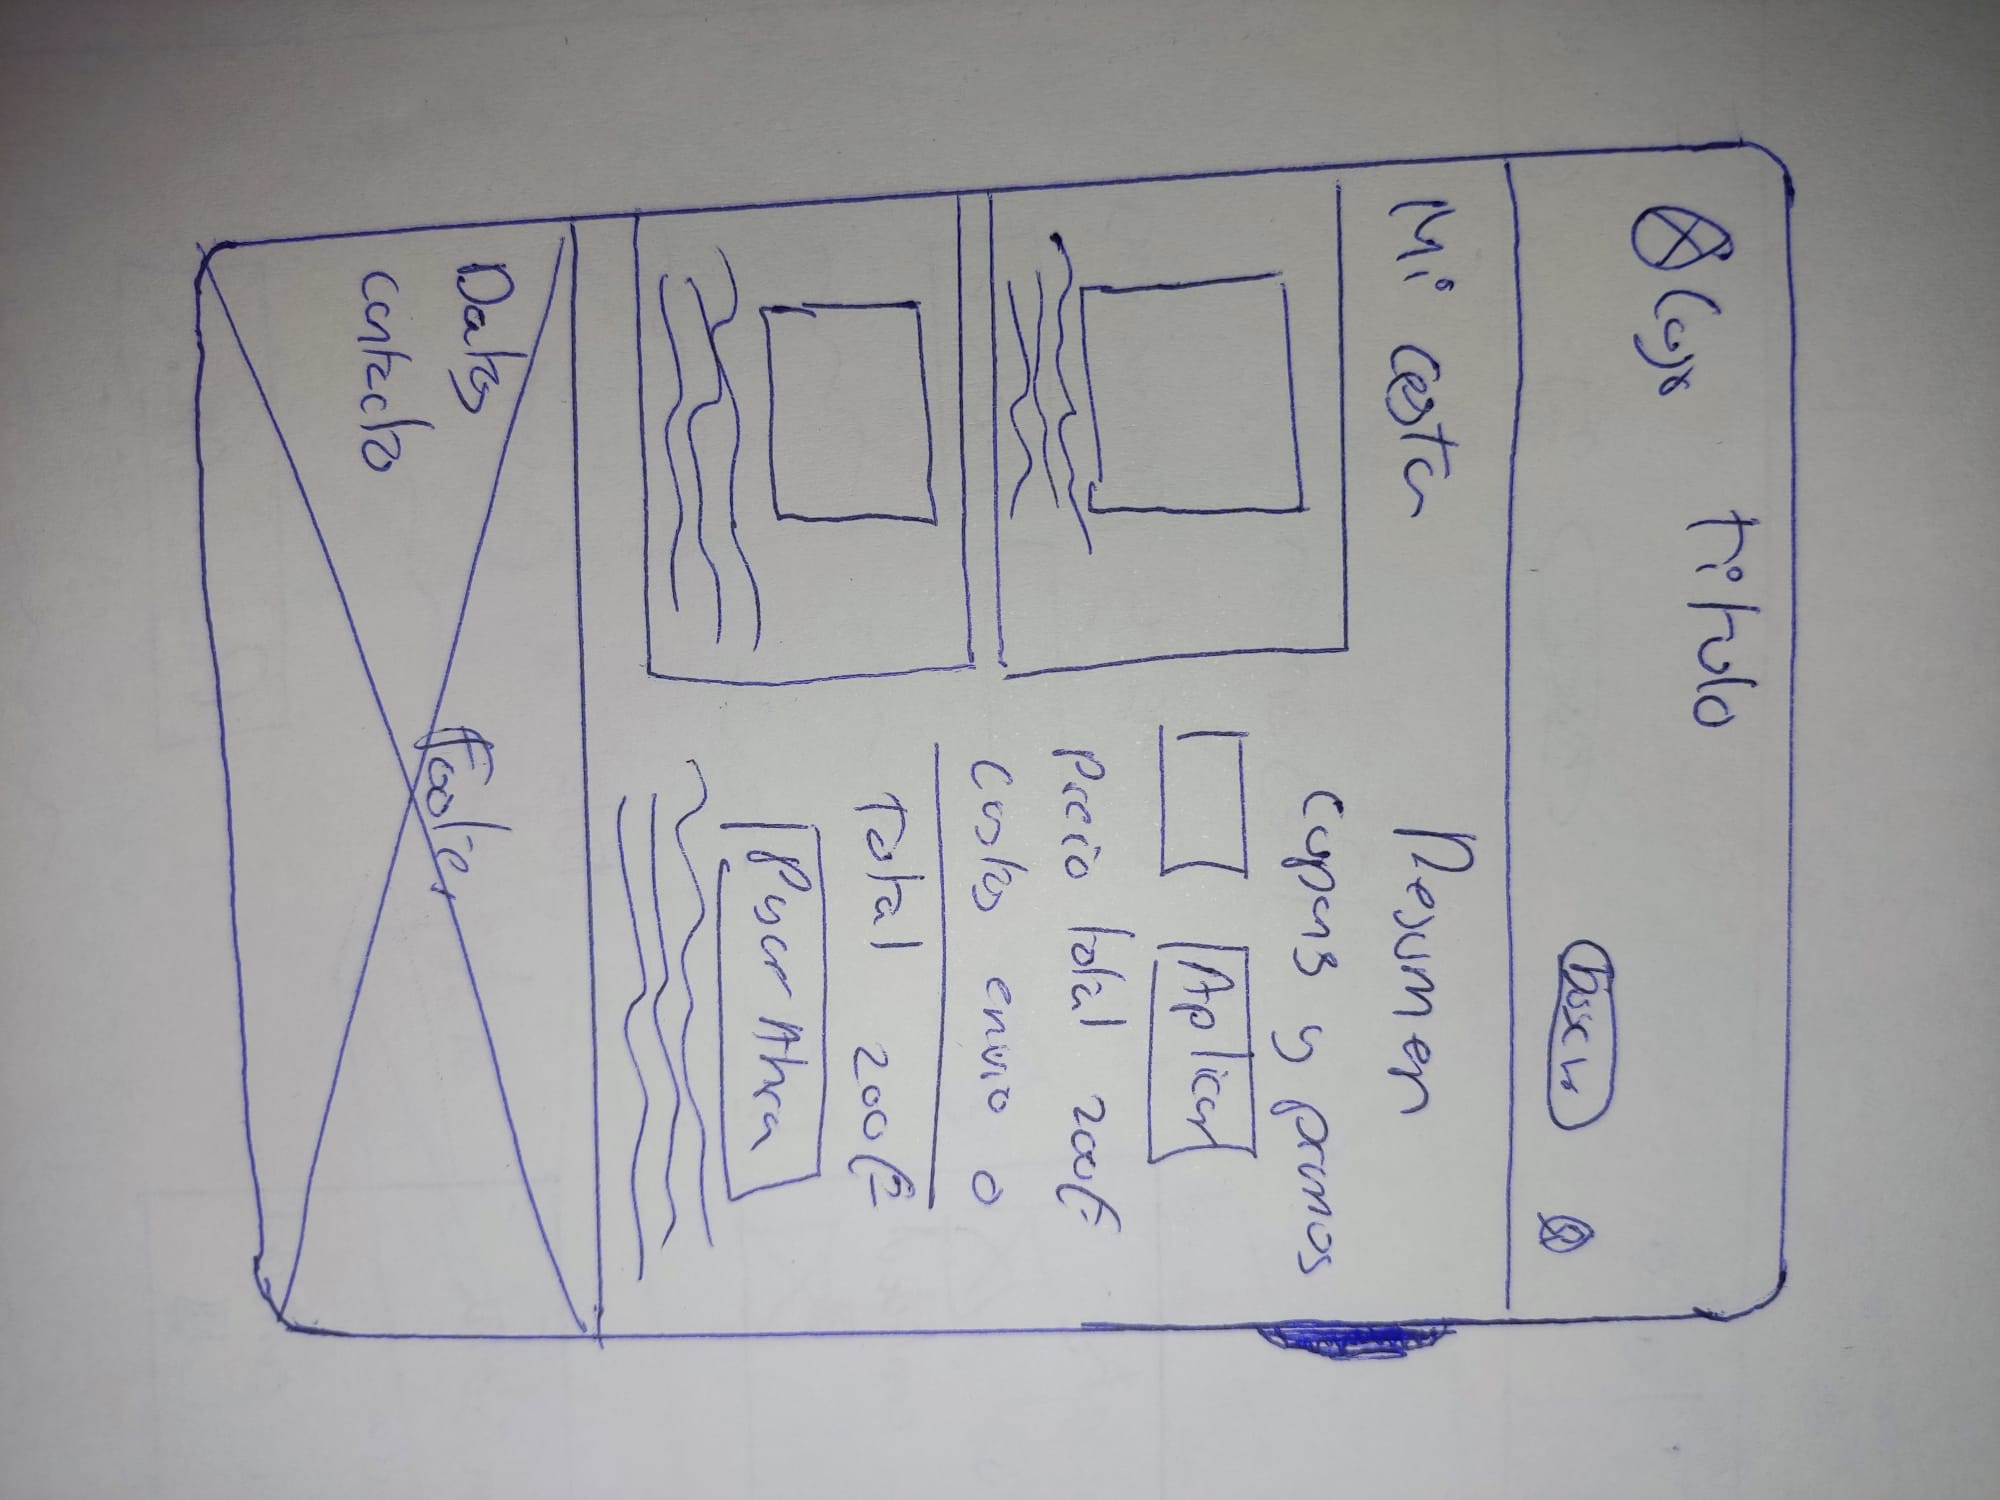 Titulo
Logo
Buscar
Mi cesta
Resumen
Cupones y promos
Aplicar
Precio total 200€
Costos envio 0
Total 200€
Pagar Ahora
Datos
contacto
Footer